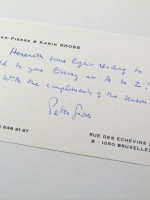 AN-PIERRE & KARIN GROSS
Herewith some light reading to
ed to your library on A to Z!
With the compliments of the season
Peter Gross
648 91 97
RUE DES ECHEVINS
B - 1050 BRUXELLE